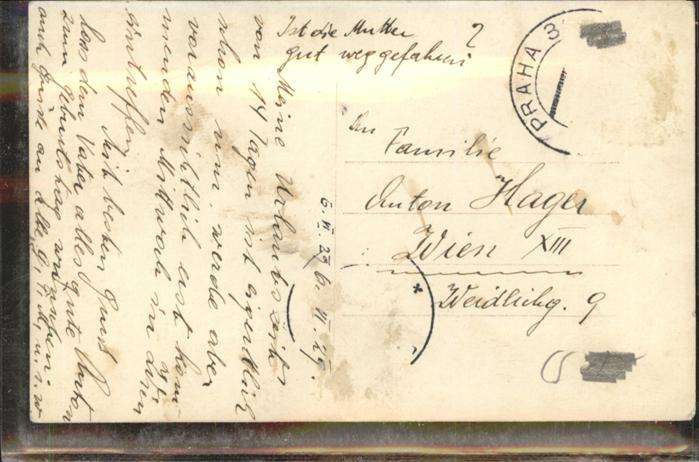 Ist die Mutter
gut weggefahren ?
PRAHA 3
An
Familie
Anton Hager
Wien XIII
Weidlichg. 9
Meine Urlaubszeit
von 14 Tagen ist eigentlich
schon um, werde aber
voraussichtlich erst kom
menden Mittwoch in
eintreffen.
Mit besten Gruss
Lass dem Vater alles gute Anton
zum Geburtstag wünschen.
auch Grüsse an Alle, u.s.w